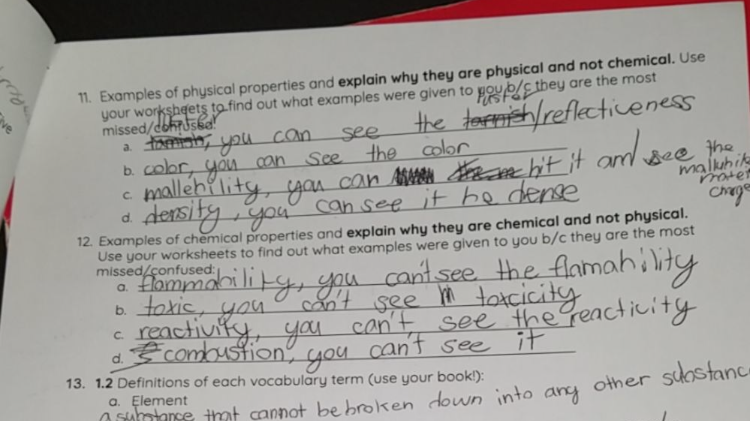 11. Examples of physical properties and explain why they are physical and not chemical. Use
your worksheets to find out what examples were given to you b/c they are the most
missed/confused:
a. you can see the /reflectiveness
b. color, you can see the color
c. mallebility, you can hit it and see the
d. density, you can see it be dense
12. Examples of chemical properties and explain why they are chemical and not physical.
Use your worksheets to find out what examples were given to you b/c they are the most
missed/confused:
a. flammability, you can't see the flamability
b. toxic, you can't see toxcicity
c. reactivity, you can't see the reactivity
d. combustion, you can't see it
13. 1.2 Definitions of each vocabulary term (use your book!):
a. Element
a substance that cannot be broken down into any other substanc